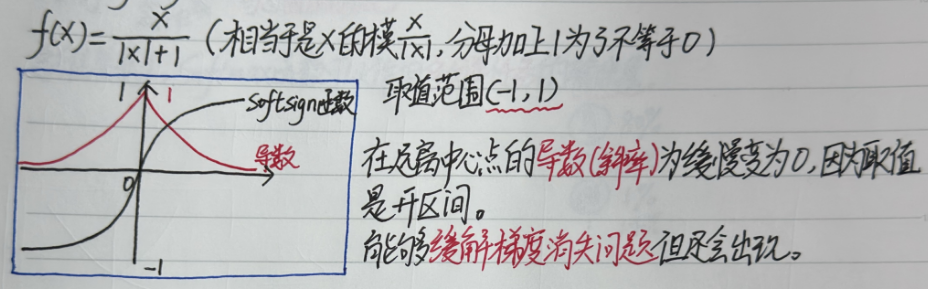 f(x)=x/(|x|+1) (相当于是x的模x/|x|,分母加上1为了不等于0)
1 1 softsign函数 取值范围(-1,1)
导数 在远离中心点的导数(斜率)为缓慢变为0,因为取值
0 是开区间。
能够缓解梯度消失问题但还会出现。
-1